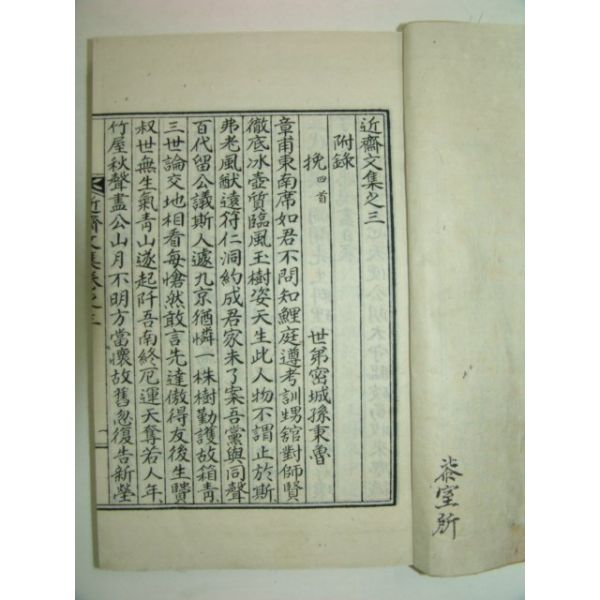 近齋文集之三
附錄
挽四首
世弟密城孫秉魯
章甫東南席如君不問知鯉庭遵考訓甥舘對師賢
徹底冰壺質臨風玉樹姿天生此人物不謂止於斯
弗老風猷遠符仁洞約成君家未了案吾黨與同聲
百代留公議斯人遽九京猶憐一株樹勤護故箱青
三世論交地相看每愴然敢言先達傲得友後生賢
叔世無生氣青山遂起阡吾南終厄運天奪若人年
竹屋秋聲盡公山月不明方當懷故舊忽復告新塋
近齋文集卷之三
一
室所